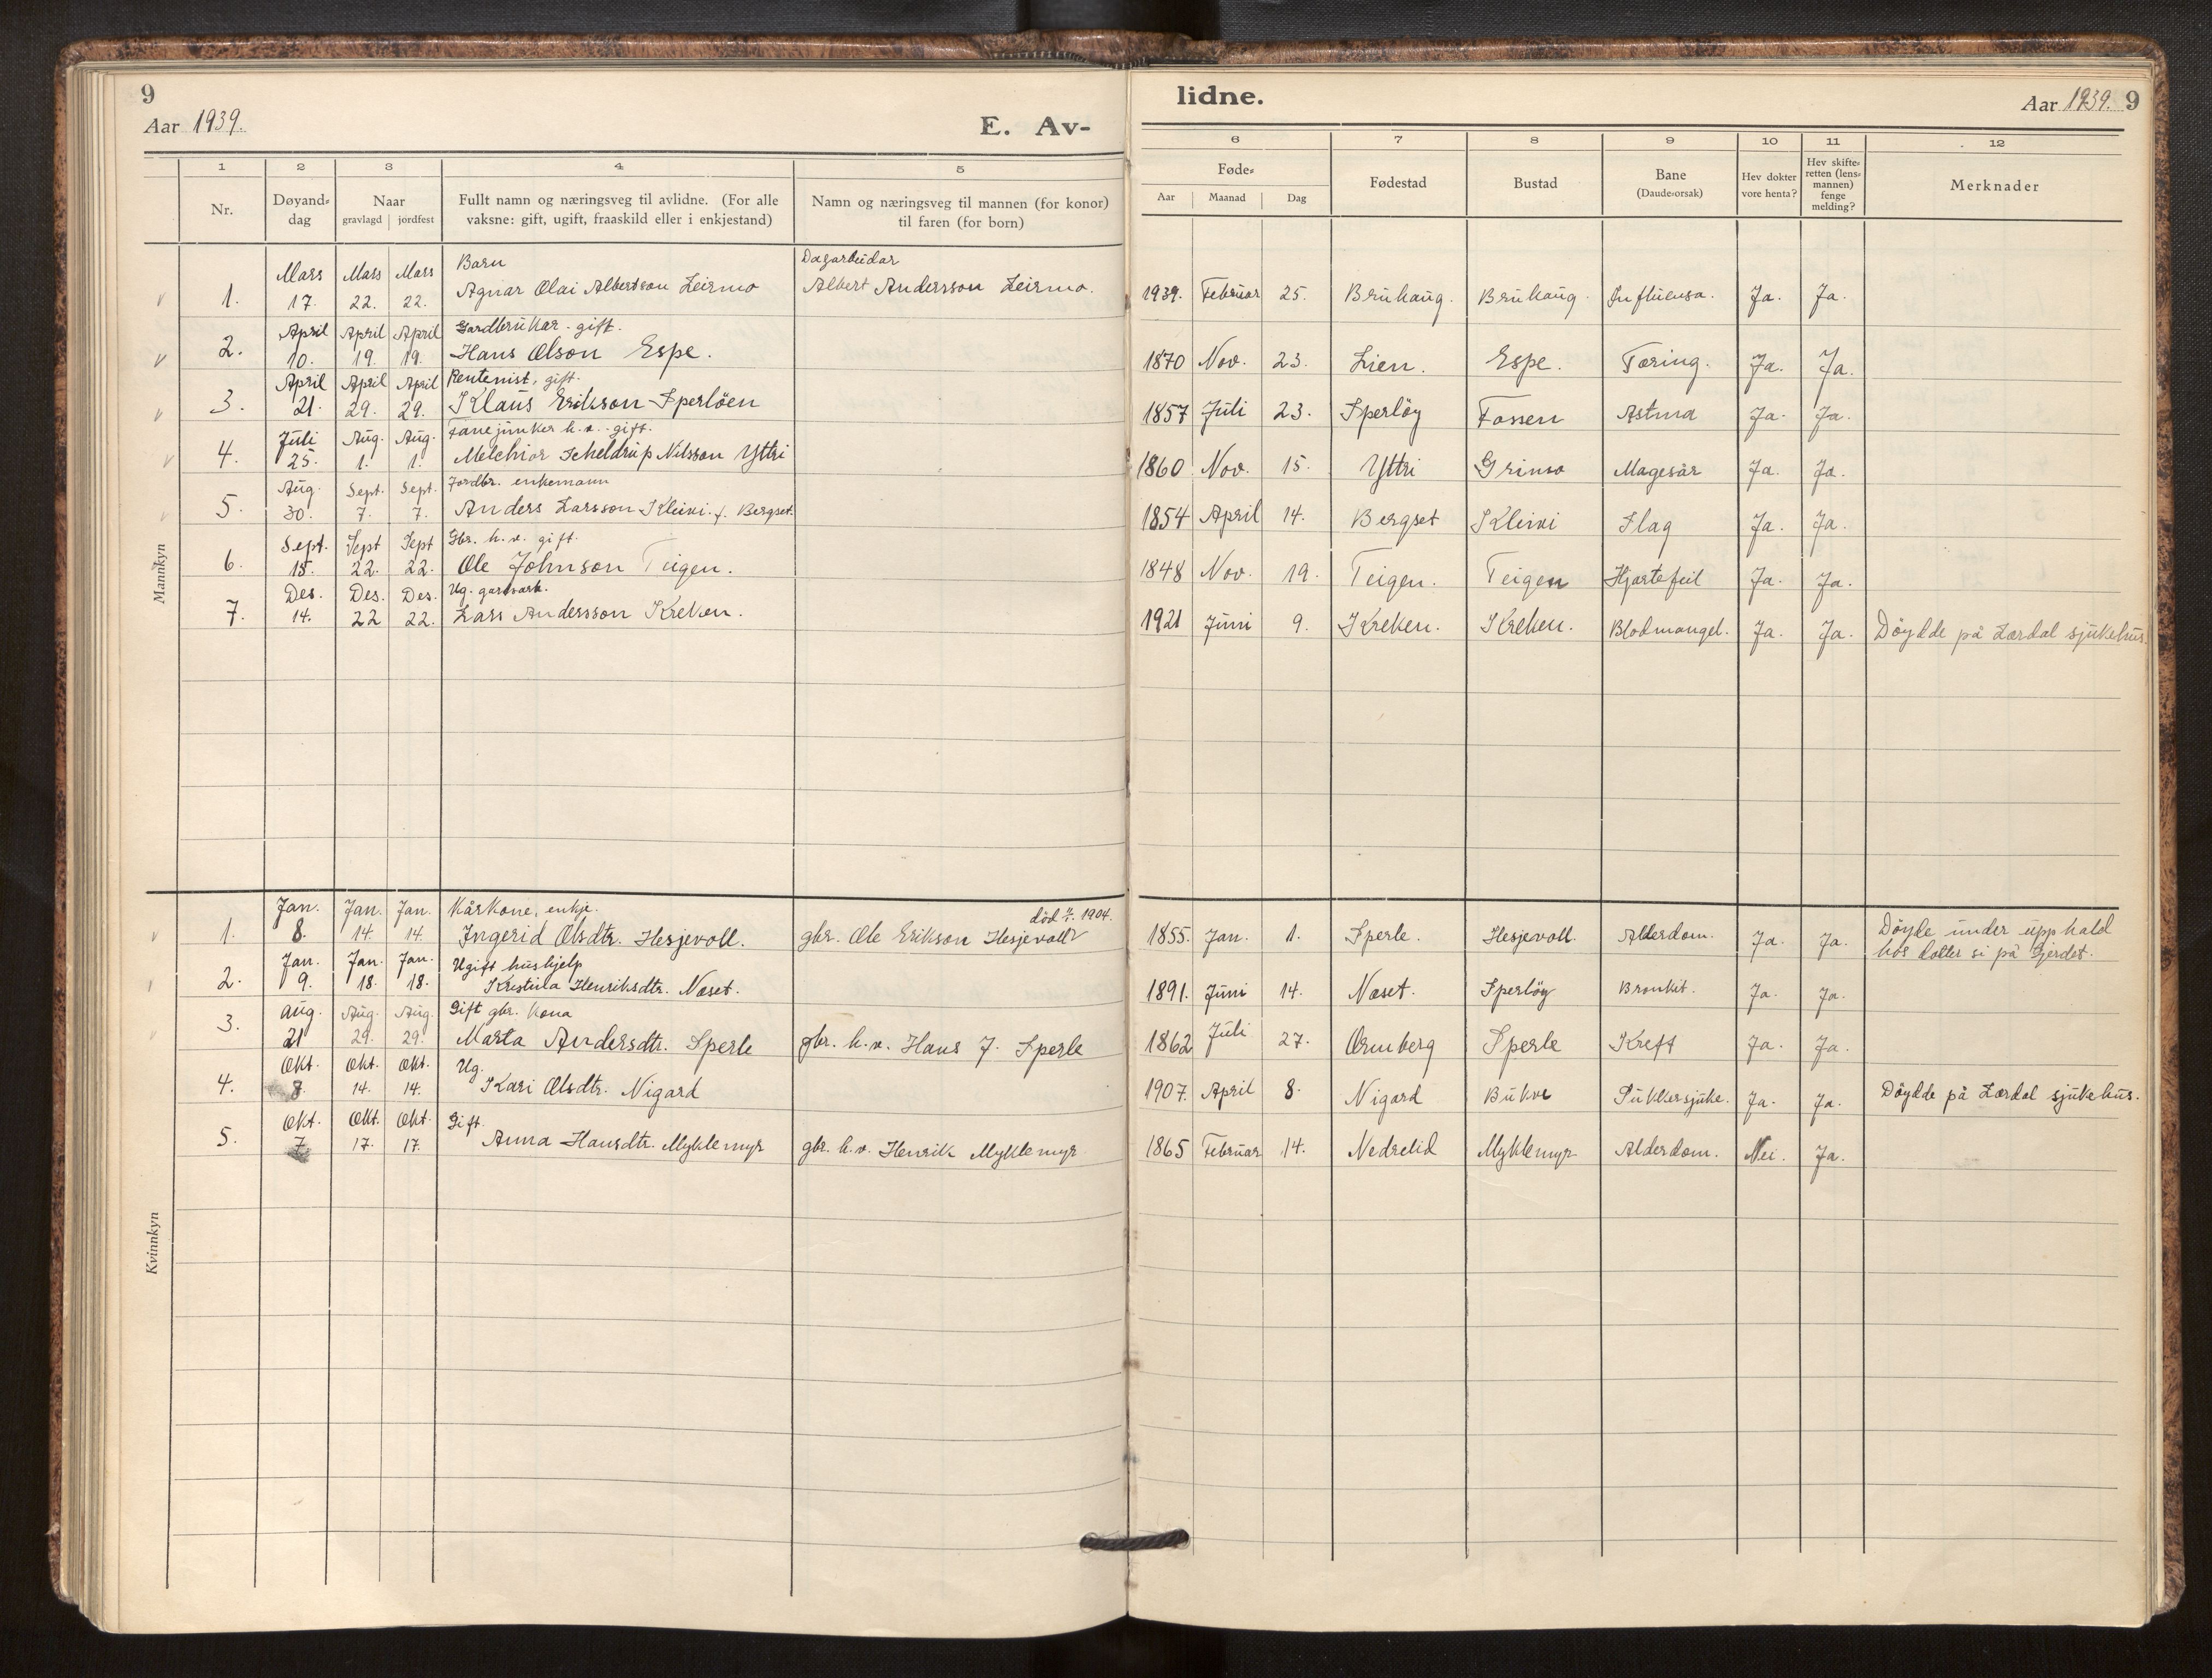 9
Aar 1939.
E. Av-
lidne.
Aar 1939. 9
1 2 3 4 5 6 7 8 9 10 11 12
Nr.
Døyand-
dag
Naar
gravlagd jordfest
Fullt namn og næringsveg til avlidne. (For alle
vaksne: gift, ugift, fraaskild eller i enkjestand)
Namn og næringsveg til mannen (for konor)
til faren (for born)
Føde-
Aar Maanad Dag
Fødestad
Bustad
Bane
(Daude-orsak)
Hev dokter
vore henta?
Hev skifte-
retten (lens-
mannen)
fenge
melding?
Merknader
Mannkyn
Mars Mars Mars Barn Dagarbeidar
1. 17. 22. 22. Agnar Olai Albertson Leirmo Albert Andersson Leirmo. 1939. Februar 25. Bruhaug. Bruhaug. Influensa. Ja. Ja.
April April April Gardbrukar. gift.
2. 10. 19. 19. Hans Olson Espe. 1870 Nov. 23. Lien. Espe. Tæring. Ja. Ja.
April April April Rentenist, gift.
3. 21. 29. 29. Klaus Erikson Sperlöen 1857 Juli 23. Sperlöy Fossen Astma Ja. Ja.
Juli Aug. Aug. Fanejunker h.v. gift.
4. 25. 1. 1. Melchior Scheldrup Nilsson Yttri 1860 Nov. 15. Yttri Grimo Magesår Ja. Ja.
Aug. Sept. Sept. Jordbr. enkemann
5. 30. 7. 7. Anders Larsson Kleivi. f. Bergset. 1854 April 14. Bergset Kleivi Slag Ja. Ja.
Sept. Sept Sept Gbr. h.v. gift.
6. 15. 22. 22. Ole Johnson Teigen. 1848 Nov. 19. Teigen. Teigen Hjartefeil Ja. Ja.
Des. Des. Des. Ug. gardsarb.
7. 14. 22 22. Lars Andersson Kreken. 1921 Juni 9. Kreken. Kreken. Blodmangel. Ja. Ja. Döydde på Lærdal sjukehus.
Kvinnkyn
Jan. Jan. Jan. Kårkone, enkje. död 1904. Döyde under upphald
1. 8. 14. 14. Ingerid Olsdtr. Hesjevoll. gbr. Ole Erikson Hesjevoll 1855. Jan. 1. Sperle. Hesjevoll. Alderdom. Ja. Ja. hos dotter si på Gjerdet.
Jan. Jan. Jan. Ugift hushjelp
2. 9. 18. 18. Kristina Henriksdtr. Næset. 1891. Juni 14. Næset. Sperlöy Bronkit. Ja. Ja.
Aug. Aug. Aug. Gift gbr. kona
3. 21 29. 29. Marta Andersdtr. Sperle gbr. h.v. Hans J. Sperle 1862 Juli 27. Ormberg Sperle Kreft Ja. Ja.
Okt. Okt. Okt. Ug.
4. 8. 14. 14. Kari Olsdtr. Nigard 1907. April 8. Nigard Bukve Sukkersjuke. Ja. Ja. Döydde på Lærdal sjukehus.
Okt. Okt. Okt. Gift.
5. 7 17. 17. Anna Hansdtr. Myklemyr gbr. h.v. Henrik Myklemyr 1865 Februar 14. Nedrelid Myklemyr Alderdom. Nei. Ja.